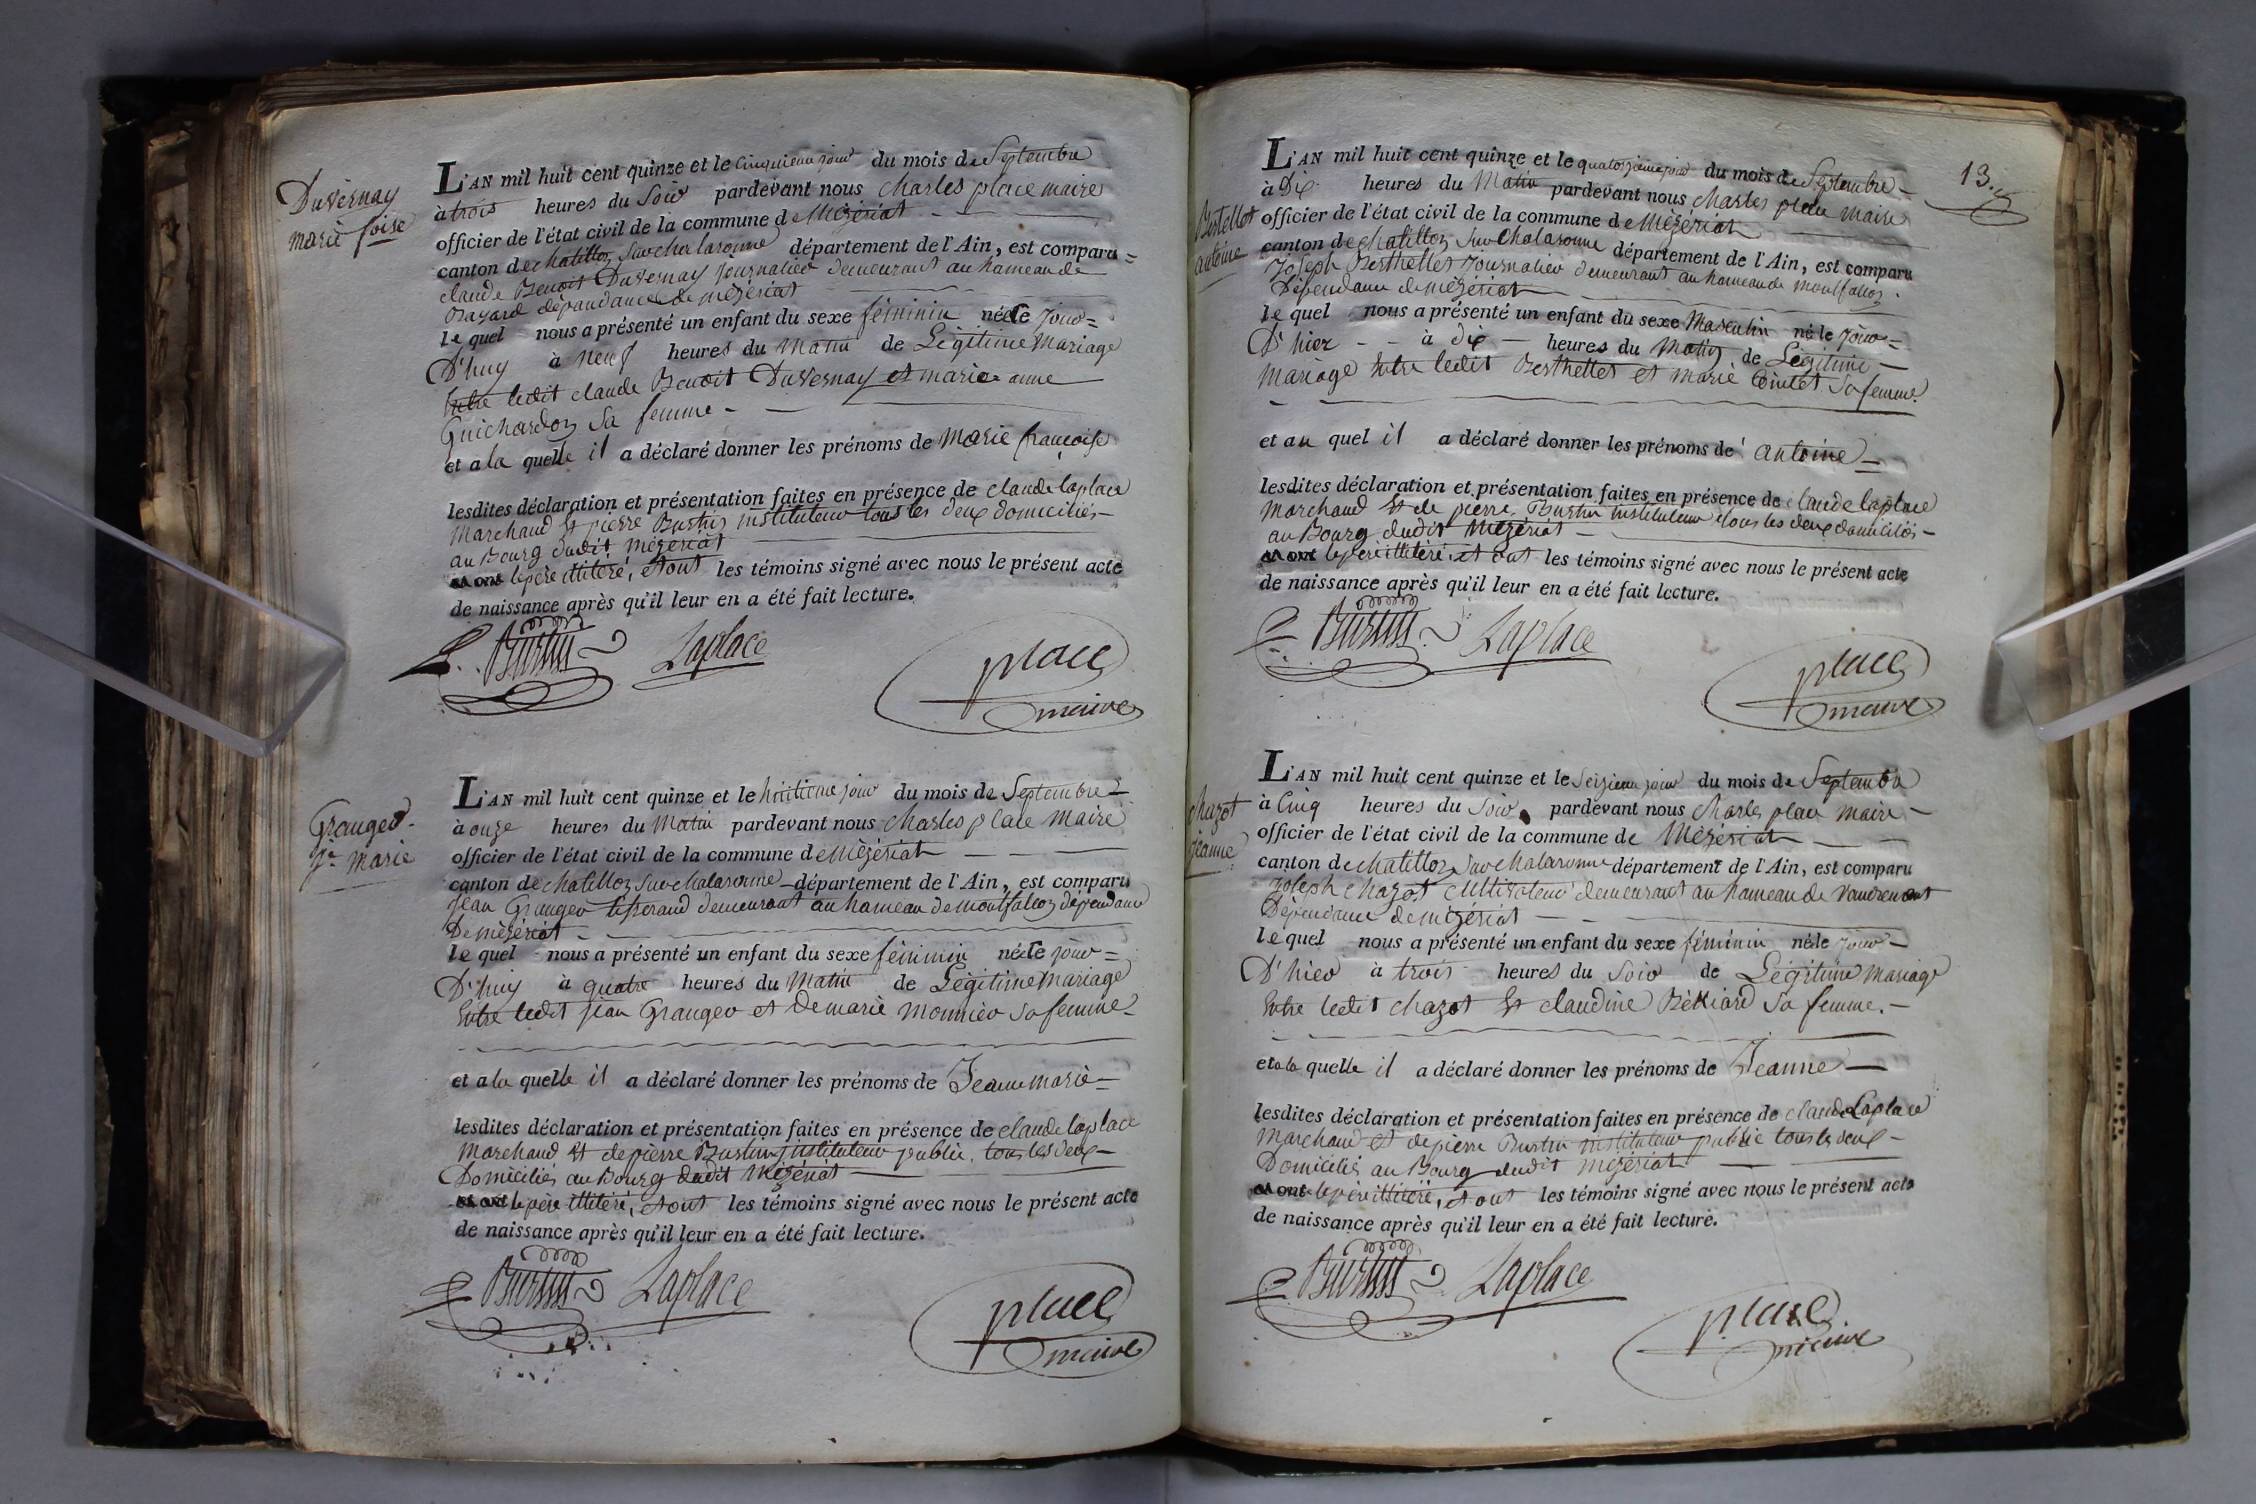 Duvernay
marie foise
L'AN mil huit cent quinze et le cinquieme jour du mois de Septembre
à trois heures du Soir pardevant nous charles place maire
officier de l'état civil de la commune de Mézériat
canton de chatillon sur chalaronne département de l'Ain, est comparu
claude Benoit Duvernay journalier demeurant au hameau de
Bayard dépendance de mézériat
le quel nous a présenté un enfant du sexe féminin née le jour
D'huy à neuf heures du Matin de Légitime Mariage
Entre ledit claude Benoit Duvernay et marie anne
Guichardon Sa femme
et a la quelle il a déclaré donner les prénoms de Marie françoise
lesdites déclaration et présentation faites en présence de claude laplace
Marchand et pierre Burtin instituteur tous les deux domiciliés
au Bourg dudit mézériat
le père illitéré, et ont les témoins signé avec nous le présent acte
de naissance après qu'il leur en a été fait lecture.
Burtin Laplace place
maire
Granger
jne Marie
L'AN mil huit cent quinze et le huitieme jour du mois de Septembre
à onze heures du Matin pardevant nous charles place maire
officier de l'état civil de la commune de Mézériat
canton de chatillon sur chalaronne département de l'Ain, est comparu
jean Granger tisserand demeurant au hameau de montfalcon dépendance
De mézériat
le quel nous a présenté un enfant du sexe féminin née le jour
D'huy à quatre heures du Matin de Légitime Mariage
Entre ledit jean Granger et de marie monnier sa femme
et a la quelle il a déclaré donner les prénoms de Jeanne marie
lesdites déclaration et présentation faites en présence de claude laplace
Marchand et de pierre Burtin instituteur public, tous les deux
Domiciliés au Bourg dudit Mézériat
le père illitéré, et ont les témoins signé avec nous le présent acte
de naissance après qu'il leur en a été fait lecture.
Burtin Laplace place
maire
13.
Bertellet
antoine
L'AN mil huit cent quinze et le quatorzieme jour du mois de Septembre
à Dix heures du Matin pardevant nous Charles place maire
officier de l'état civil de la commune de Mézériat
canton de chatillon sur Chalaronne département de l'Ain, est comparu
Joseph Berthellet journalier demeurant au hameau de montfalcon
Dépendance de mézériat
le quel nous a présenté un enfant du sexe Masculin né le jour
D'hier à dix heures du Matin de Légitime
mariage Entre ledit Berthellet et marie Cointet Sa femme
et au quel il a déclaré donner les prénoms de antoine
lesdites déclaration et présentation faites en présence de claude laplace
Marchand et de pierre Burtin instituteur tous les deux domiciliés
au Bourg dudit Mézériat
le père illitéré, et ont les témoins signé avec nous le présent acte
de naissance après qu'il leur en a été fait lecture.
Burtin Laplace place
maire
chazot
jeanne
L'AN mil huit cent quinze et le Seizieme jour du mois de Septembre
à Cinq heures du Soir pardevant nous charles place maire
officier de l'état civil de la commune de Mézériat
canton de chatillon sur chalaronne département de l'Ain, est comparu
Joseph chazot Cultivateur demeurant au hameau de Vaudrenant
Dépendance de mézériat
le quel nous a présenté un enfant du sexe féminin née le jour
D'hier à trois heures du Soir de Légitime mariage
Entre ledit chazot et claudine Békiard Sa femme.
et a la quelle il a déclaré donner les prénoms de Jeanne
lesdites déclaration et présentation faites en présence de claude Laplace
Marchand et de pierre Burtin instituteur public tous les deux
Domiciliés au Bourg dudit mézériat
le père illitéré, et ont les témoins signé avec nous le présent acte
de naissance après qu'il leur en a été fait lecture.
Burtin Laplace place
maire